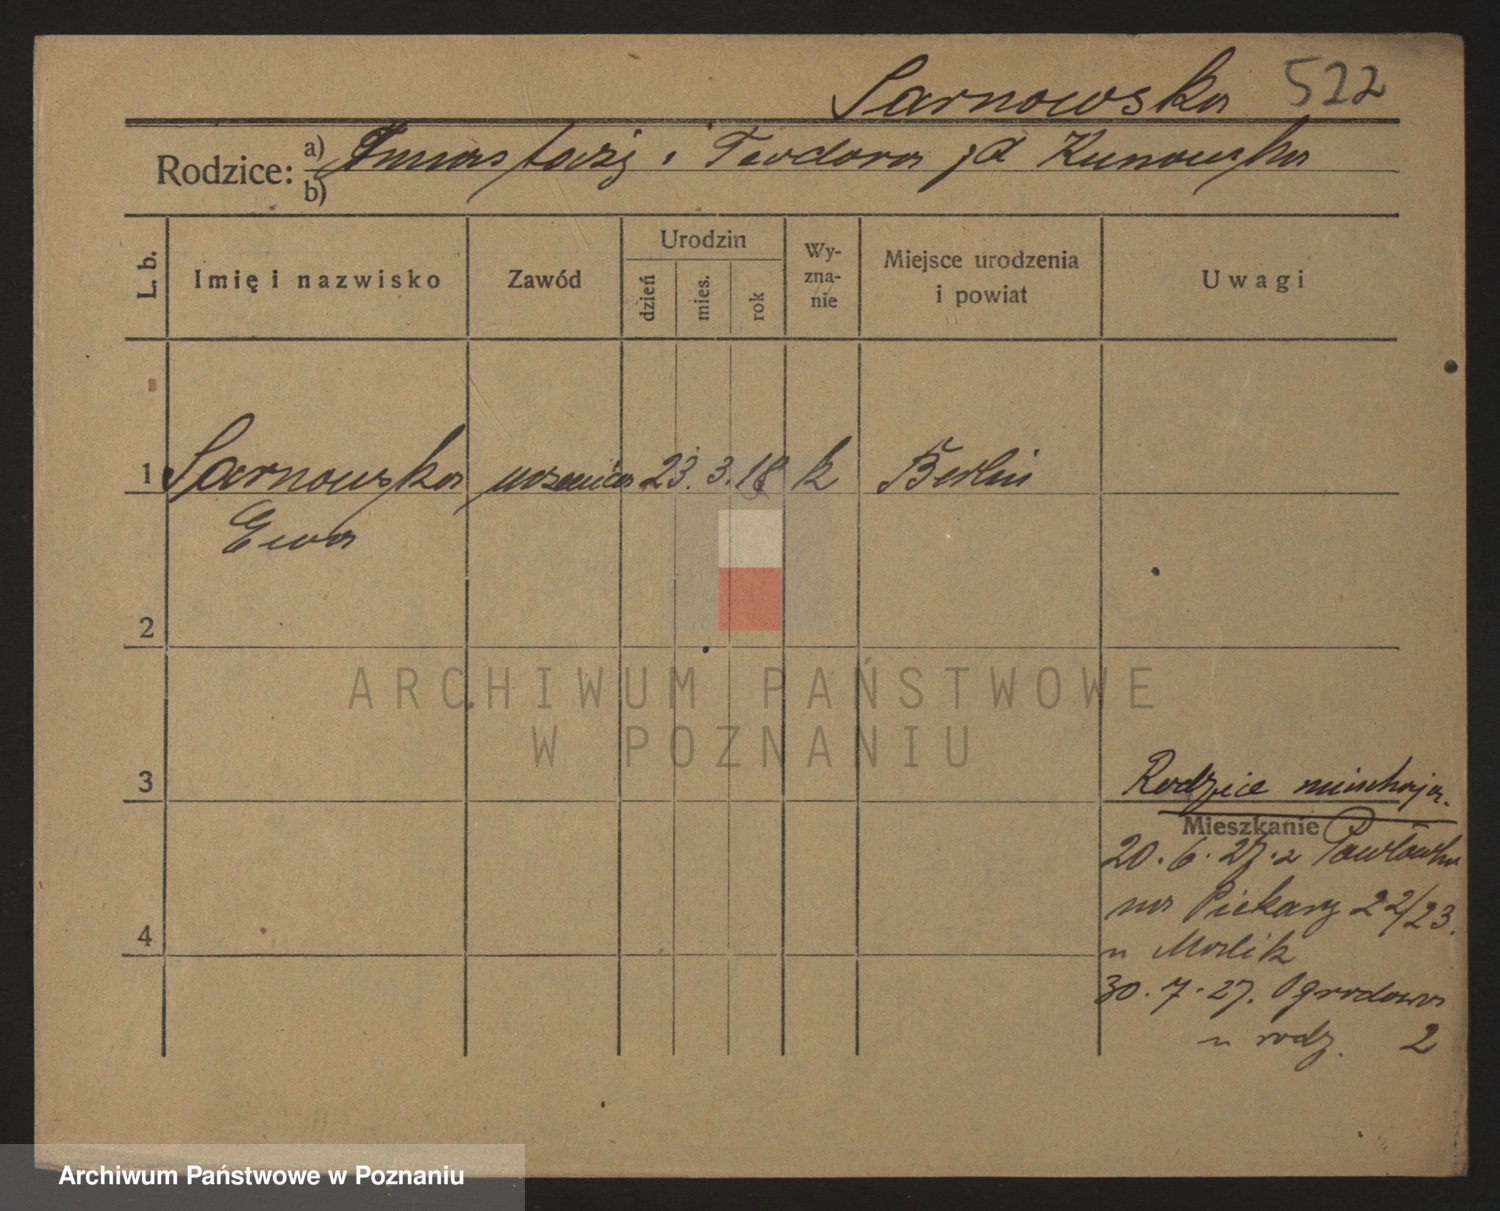 Sarnowska 522
Rodzice: a) Anastazy i Teodora zd Kunowska
b)
L. b. Imię i nazwisko Zawód Urodzin dzień mies. rok Wy-zna-nie Miejsce urodzenia i powiat Uwagi
1 Sarnowska uczenica 23. 3. 18 k Berlin
Ewa
2
3
4
Rodzice mieszkają
Mieszkanie
20. 6. 27. z
na Piekary 22/23.
u
30. 7. 27. Ogrodowa
u rodz. 2
ARCHIWUM PAŃSTWOWE
W POZNANIU
Archiwum Państwowe w Poznaniu